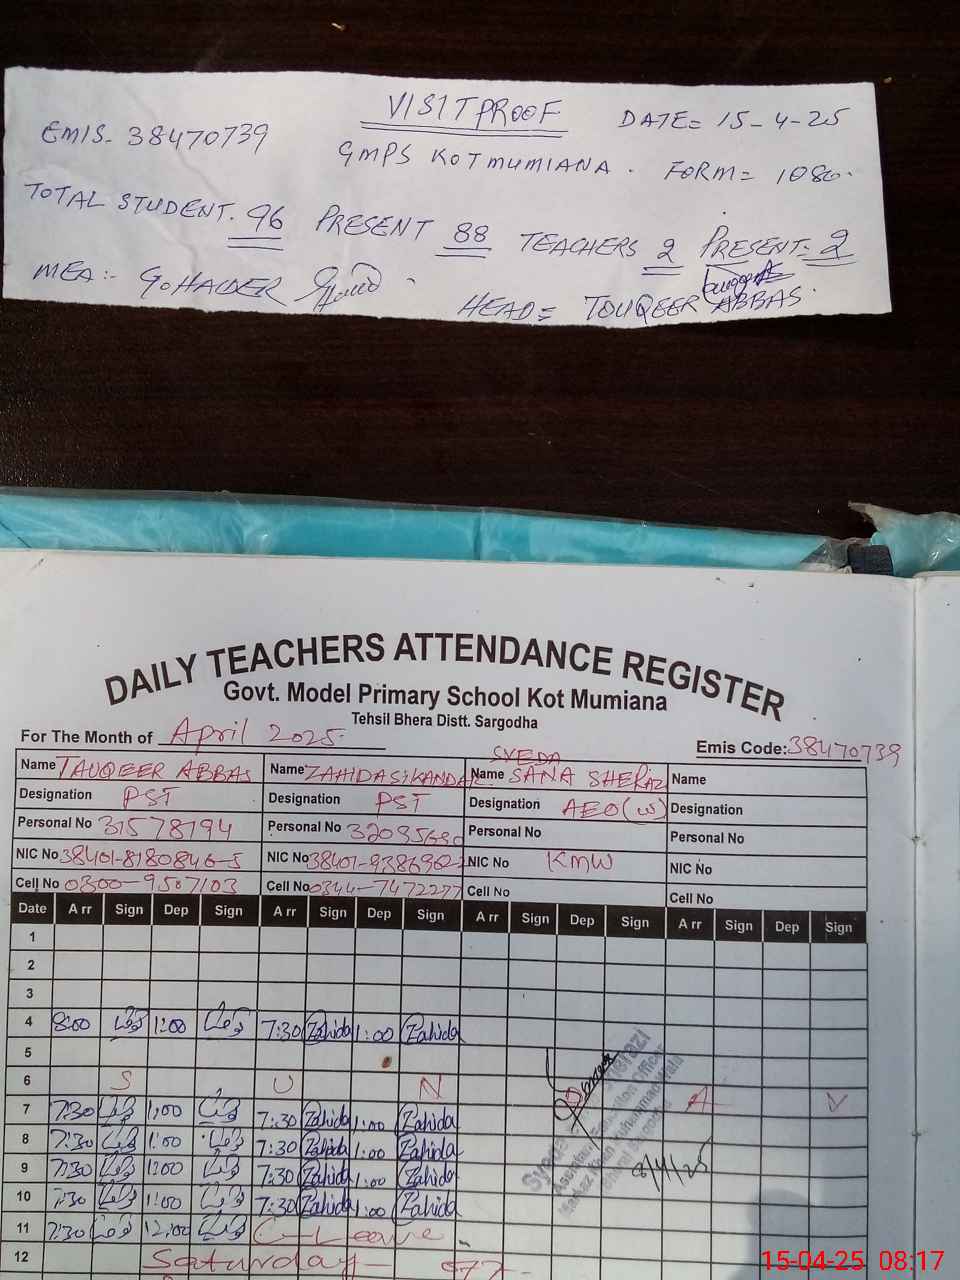 VISIT PROOF
DATE= 15-4-25
EMIS- 38470739
GMPS KOTMUMIANA. FORM= 1080.
TOTAL STUDENT. 96 PRESENT 88 TEACHERS 2 PRESENT= 2
MEA:- G. HAIDER
HEAD= TOUQEER ABBAS.
DAILY TEACHERS ATTENDANCE REGISTER
Govt. Model Primary School Kot Mumiana
Tehsil Bhera Distt. Sargodha
For The Month of April 2025. Emis Code: 38470739
Name TAUQEER ABBAS Name ZAHIDA SIKANDAR Name SYEDA SANA SHERAZI Name
Designation PST Designation PST Designation AEO(W) Designation
Personal No 31578194 Personal No Personal No Personal No
NIC No 38401-8180846-5 NIC No NIC No KMW NIC No
Cell No 0300-9507103 Cell No 0344-7472277 Cell No Cell No
Date Arr Sign Dep Sign Arr Sign Dep Sign Arr Sign Dep Sign Arr Sign Dep Sign
1
2
3
4 8:00 1:00 7:30 Zahida 1:00 Zahida
5
6 S U N D A Y
7 7:30 1:00 7:30 Zahida 1:00 Zahida
8 7:30 1:00 7:30 Zahida 1:00 Zahida
9 7:30 1:00 7:30 Zahida 1:00 Zahida
10 7:30 1:00 7:30 Zahida 1:00 Zahida
11 7:30 12:00 C-Leave
12 Saturday - off
Assistant Education Officer
8/4/25
15-04-25 08:17